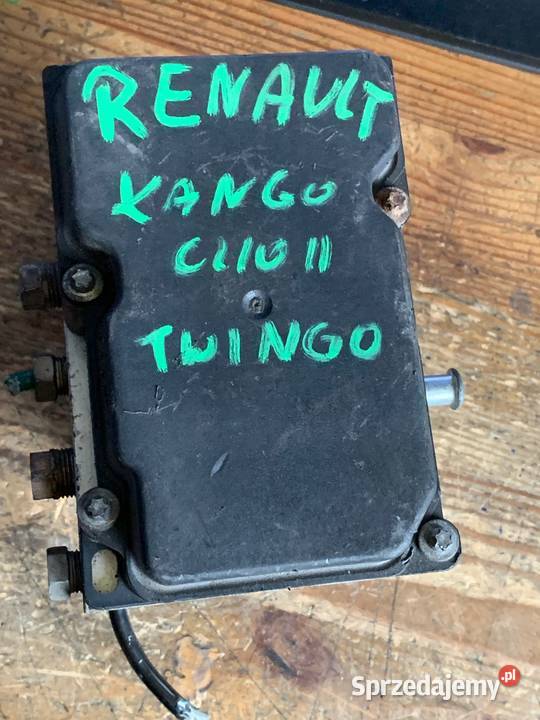 RENAULT
KANGO
CLIO II
TWINGO
Sprzedajemy.pl